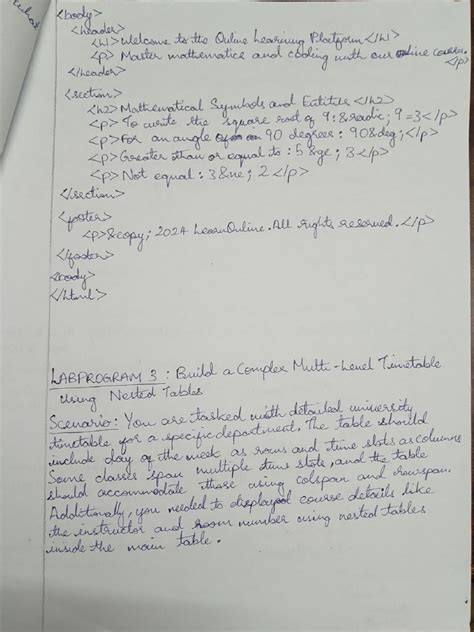 <body>
<header>
<h1>Welcome to the Online Learning Platform</h1>
<p> Master mathematics and coding with our online courses.
</p>
</header>
<section>
<h2> Mathematical Symbols and Entities </h2>
<p> To write the square root of 9: &radic; 9 = 3</p>
<p> For an angle of 90 degrees: 90&deg;</p>
<p> Greater than or equal to : 5 &ge; 3</p>
<p> Not equal : 3 &ne; 2 </p>
</section>
<footer>
<p>&copy; 2024 LearnOnline. All rights reserved. </p>
</footer>
<body>
</html>
LABPROGRAM 3 : Build a Complex Multi-Level Timetable
Using Nested Tables
Scenario: You are tasked with detailed university
timetable for a specific department. The table should
include day of the week as rows and time slots as columns
Some classes span multiple time slots, and the table
should accommodate those using colspan and rowspan.
Additionally, you needed to display course details like
the instructor and room number using nested tables
inside the main table.